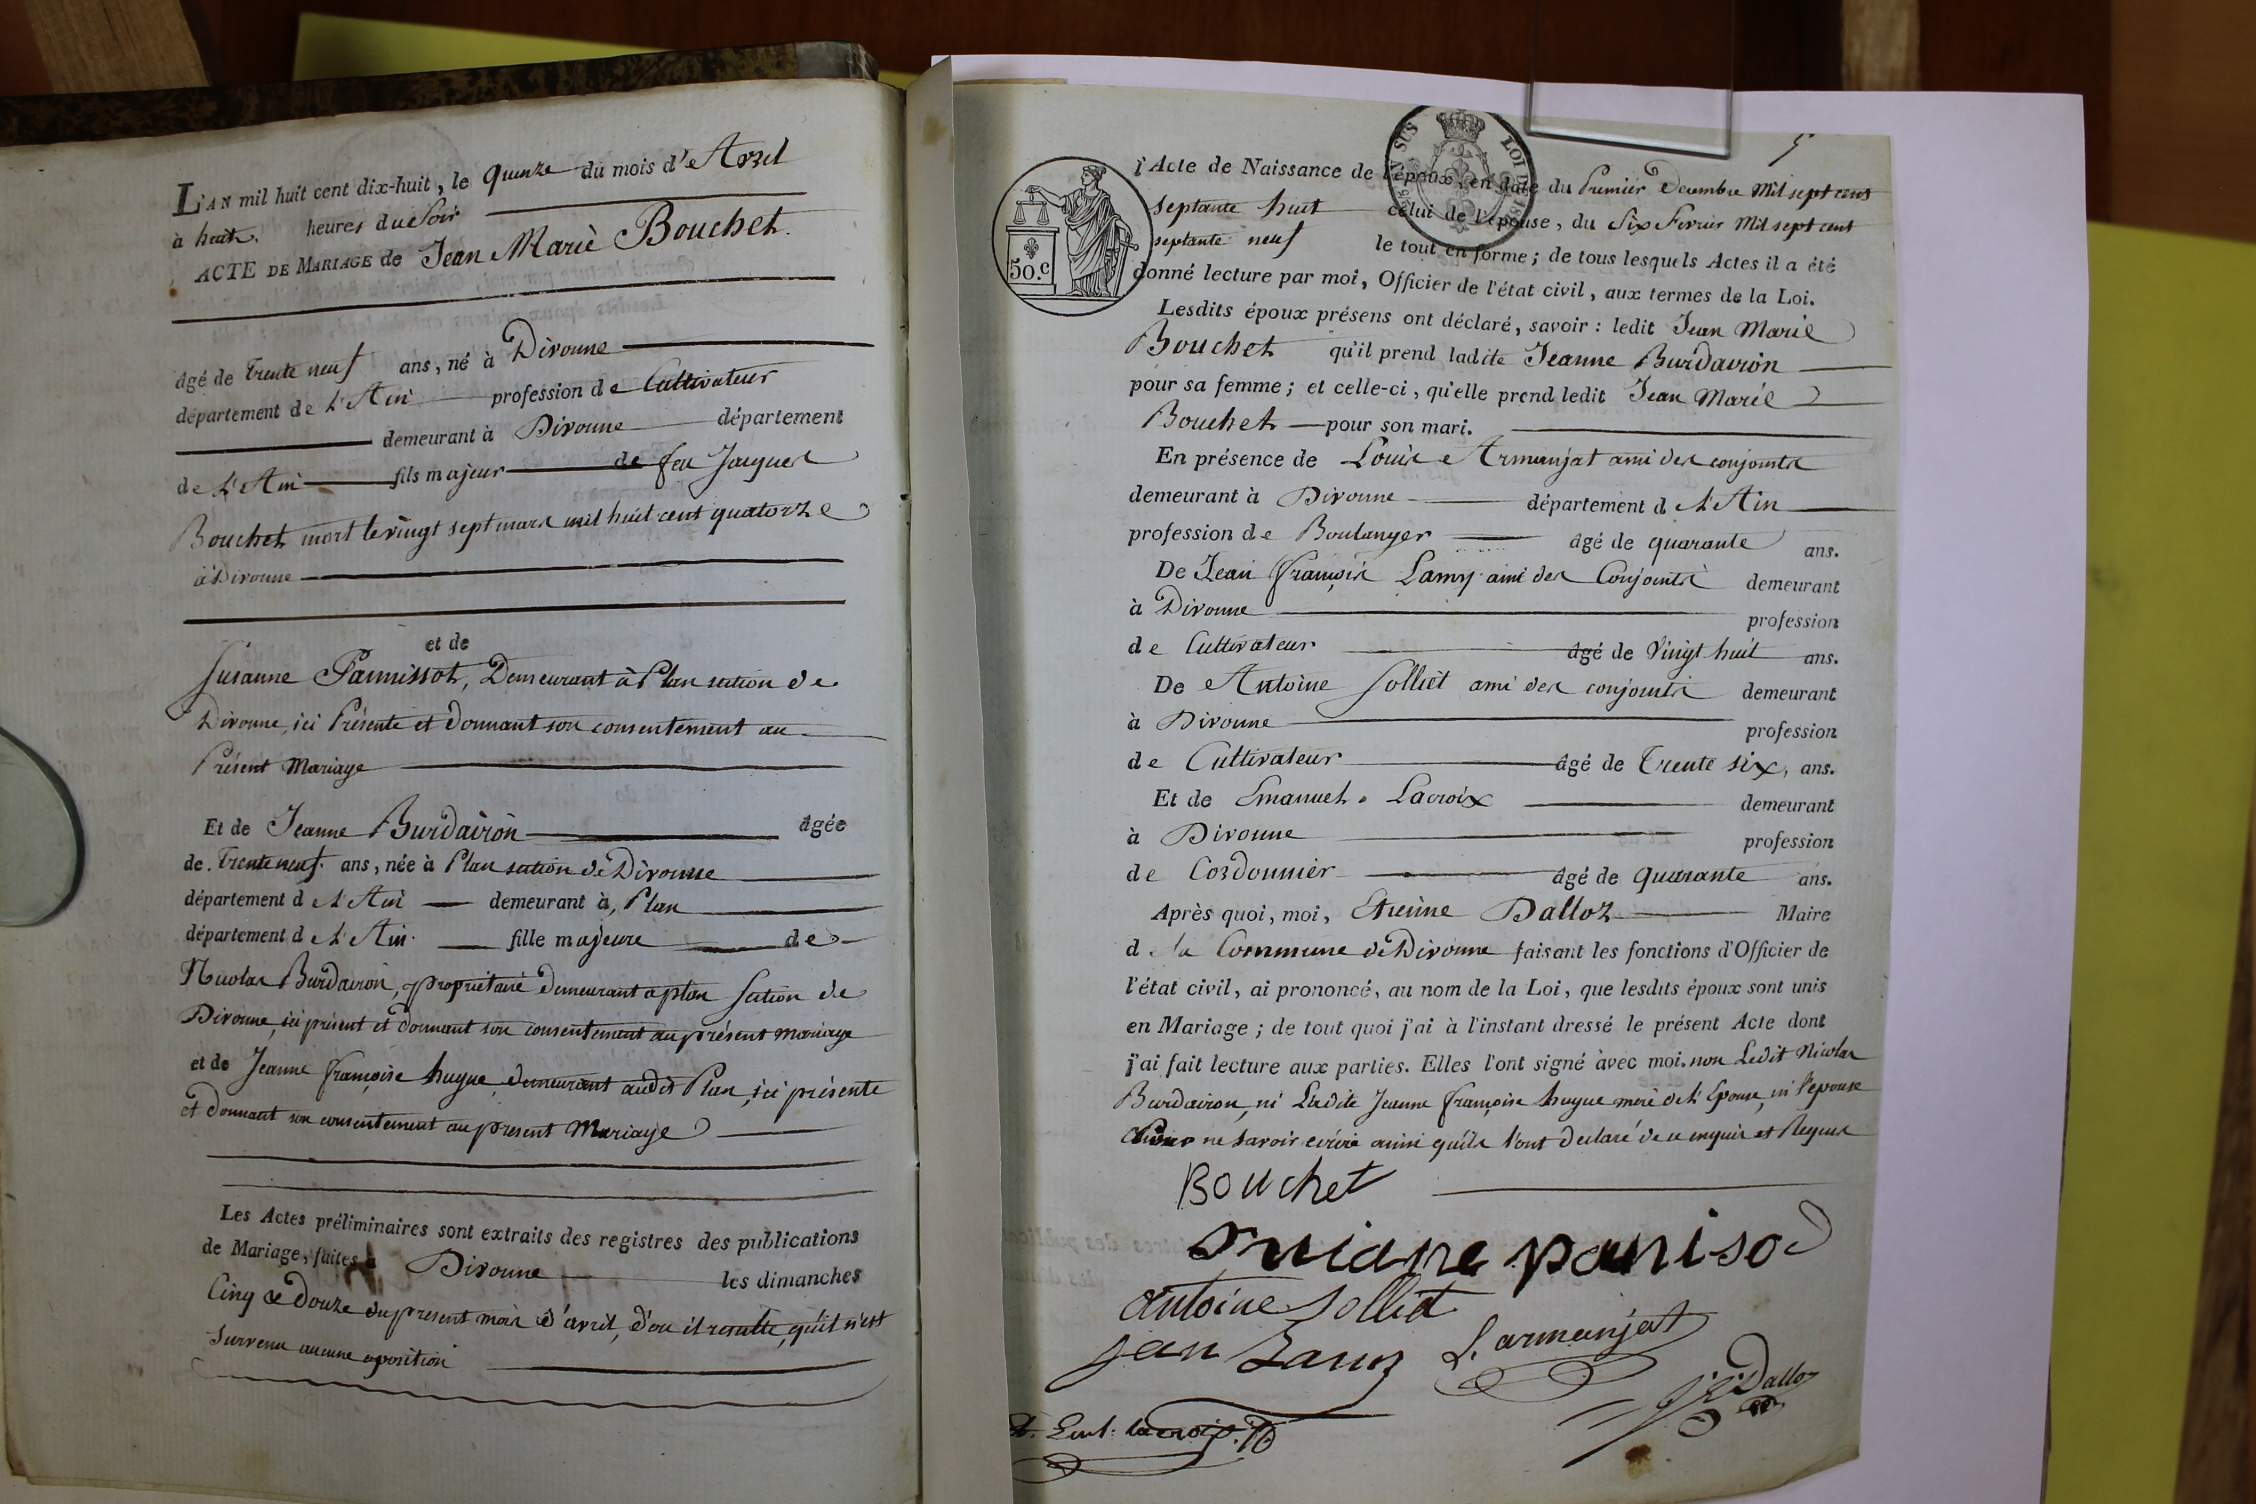 L'AN mil huit cent dix-huit, le quinze du mois d'Avril
à huit heures du Soir
ACTE DE MARIAGE de Jean Marie Bouchet.
âgé de trente neuf ans, né à Divonne
département de L'Ain profession de Cultivateur
demeurant à Divonne département
de L'Ain fils majeur de feu Jacques
Bouchet mort le vingt sept mars mil huit cent quatorze
à Divonne
et de
Susanne Pannissot, Demeurant à Plan section de
Divonne, ici Présente et donnant son consentement au
Présent Mariage
Et de Jeanne Burdairon âgée
de Trente neuf ans, née à Plan section de Divonne
département d L'Ain demeurant à Plan
département d L'Ain fille majeure de
Nicolas Burdairon, propriétaire demeurant a plan section de
Divonne, ici présent et donnant son consentement au présent mariage
et de Jeanne françoise hugue, demeurant audit Plan, ici présente
et donnant son consentement au present Mariage
Les Actes préliminaires sont extraits des registres des publications
de Mariage, faites à Divonne les dimanches
Cinq & Douze du present mois d'avril, d'ou il resulte, qu'il n'est
survenu aucune oposition
5
LOI DE 18
SUS
50.c
1 Acte de Naissance de l'époux, en date du Premier Decembre Mil sept cens
septante huit celui de l'épouse, du Six Fevrier Mil sept cent
septante neuf le tout en forme; de tous lesquels Actes il a été
donné lecture par moi, Officier de l'état civil, aux termes de la Loi.
Lesdits époux présens ont déclaré, savoir: ledit Jean Marie
Bouchet qu'il prend ladite Jeanne Burdairon
pour sa femme; et celle-ci, qu'elle prend ledit Jean Marie
Bouchet pour son mari.
En présence de Louis Armanjat ami des conjoints
demeurant à Divonne département d L'Ain
profession de Boulanger âgé de quarante ans.
De Jean François Lamy ami des Conjoints demeurant
à Divonne profession
de Cultivateur âgé de Vingt huit ans.
De Antoine Solliet ami des conjoints demeurant
à Divonne profession
de Cultivateur âgé de Trente six, ans.
Et de Emanuel Lacroix demeurant
à Divonne profession
de Cordonnier âgé de quarante ans.
Après quoi, moi, Etienne Dalloz Maire
d la Commune de Divonne faisant les fonctions d'Officier de
l'état civil, ai prononcé, au nom de la Loi, que lesdits époux sont unis
en Mariage; de tout quoi j'ai à l'instant dressé le présent Acte dont
j'ai fait lecture aux parties. Elles l'ont signé avec moi. non Ledit Nicolas
Burdairon, ni Ladite Jeanne françoise hugue mere de L'Epouse, ni l'epouse
ne savoir ecrire ainsi qu'ils l'ont declaré de ce enquis et Requis
Bouchet
paniso
antoine solliet
jan Lamy L. armanjat
Dalloz
lacroix